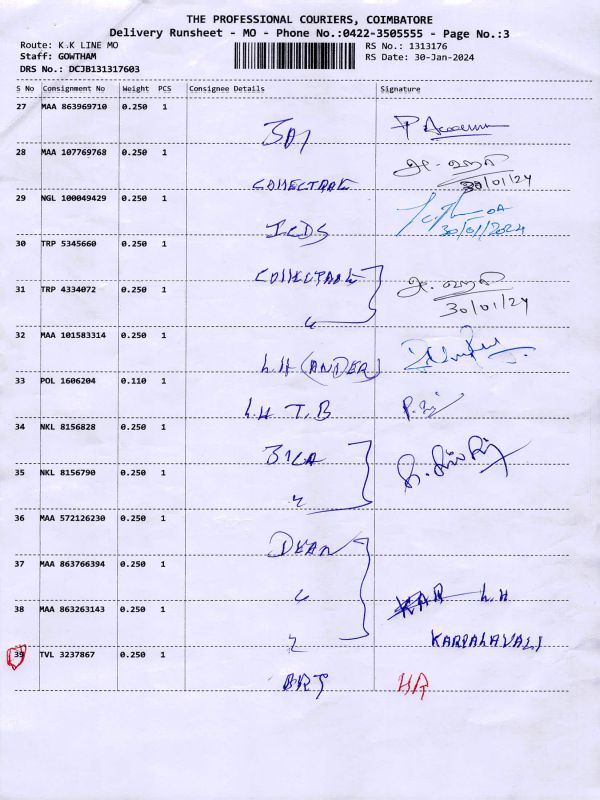 THE PROFESSIONAL COURIERS, COIMBATORE
Delivery Runsheet - MO - Phone No.:0422-3505555 - Page No.:3
Route: K.K LINE MO
RS No.: 1313176
Staff: GOWTHAM
RS Date: 30-Jan-2024
DRS No.: DCJB131317603
S No Consignment No Weight PCS Consignee Details Signature
27 MAA 863969710 0.250 1
28 MAA 107769768 0.250 1
30/01/24
29 NGL 100049429 0.250 1
ICDS
30/01/2024
30 TRP 5345660 0.250 1
31 TRP 4334072 0.250 1
30/01/24
32 MAA 101583314 0.250 1
L.H (ANDER)
33 POL 1606204 0.110 1
L.H T.B
34 NKL 8156828 0.250 1
35 NKL 8156790 0.250 1
36 MAA 572126230 0.250 1
DEAN
37 MAA 863766394 0.250 1
38 MAA 863263143 0.250 1
L.H
39 TVL 3237867 0.250 1